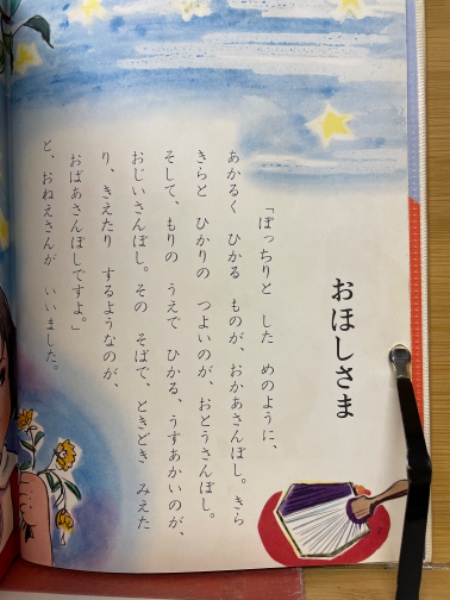 おほしさま
「ぽっちりと した めのように、
あかるく ひかる ものが、おかあさんぼし。きら
きらと ひかりの つよいのが、おとうさんぼし。
そして、もりの うえで ひかる、うすあかいのが、
おじいさんぼし。その そばで、ときどき みえた
り、きえたり するようなのが、
おばあさんぼしですよ。」
と、おねえさんが いいました。